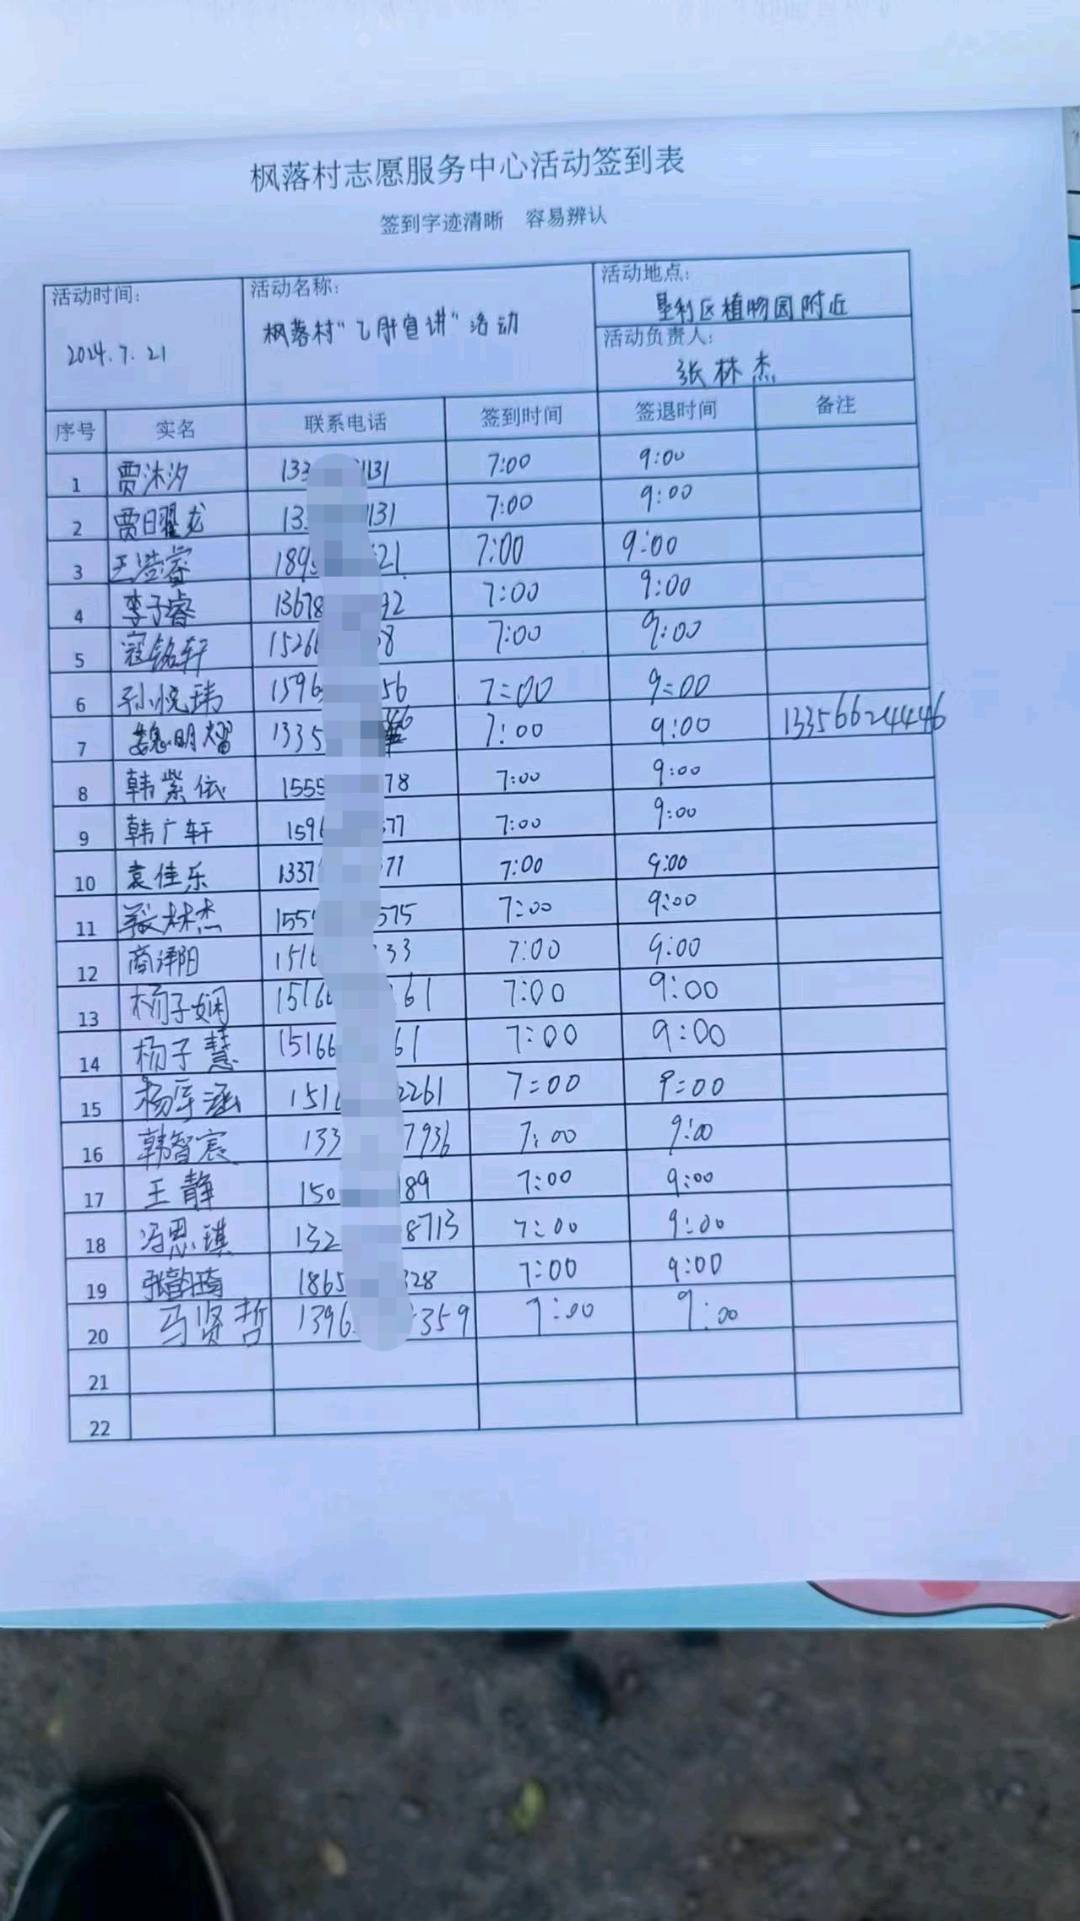 枫落村志愿服务中心活动签到表
签到字迹清晰 容易辨认
活动时间: 2024.7.21
活动名称: 枫落村“乙肝宣讲”活动
活动地点: 垦利区植物园附近
活动负责人: 张林杰
序号 实名 联系电话 签到时间 签退时间 备注
1 贾沐汐 133 1131 7:00 9:00
2 贾日翟龙 13 1131 7:00 9:00
3 王浩睿 189 21 7:00 9:00
4 李子睿 13678 92 7:00 9:00
5 寇铭轩 1526 8 7:00 9:00
6 孙悦玮 1596 56 7:00 9:00
7 魏明熠 1335 46 7:00 9:00 13356624446
8 韩紫依 1555 78 7:00 9:00
9 韩广轩 1596 577 7:00 9:00
10 袁佳乐 1337 71 7:00 9:00
11 张林杰 155 575 7:00 9:00
12 商泽阳 1516 33 7:00 9:00
13 杨子娴 15166 61 7:00 9:00
14 杨子慧 15166 61 7:00 9:00
15 杨雨涵 151 2261 7:00 9:00
16 韩智宸 133 7936 7:00 9:00
17 王静 150 189 7:00 9:00
18 冯思琪 132 8713 7:00 9:00
19 张韵琦 1865 328 7:00 9:00
20 马贤哲 1396 359 7:00 9:00
21
22